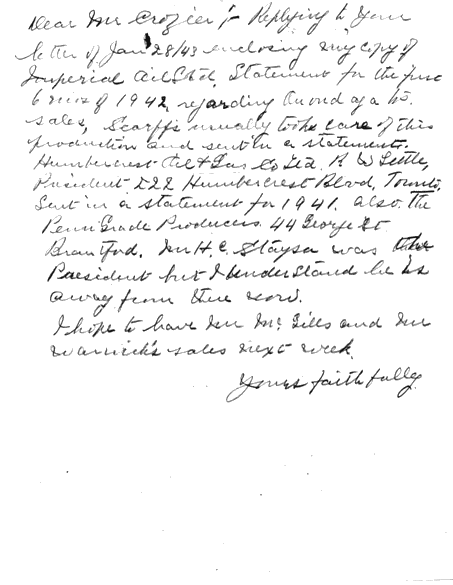 Dear Mr Crozier;- Replying to your
letter of Jan 28/43 enclosing my copy of
Imperial Oil Ltd. Statement for the first
6 mos of 1942, regarding Onondaga
sales, Scarffs usually took care of this
production and sent in a statement.
Humbercrest Oil & Gas Co Ltd. R W
President 222 Humbercrest Blvd, Toronto,
Sent in a statement for 1941. also. The
Penn Grade Producers. 44 George St
Brantford. Mr H. E. was the
President but I understand he is
away from there now.
I hope to have Mr Mc Gills and Mr
Warnick's sales next week.
Yours faithfully